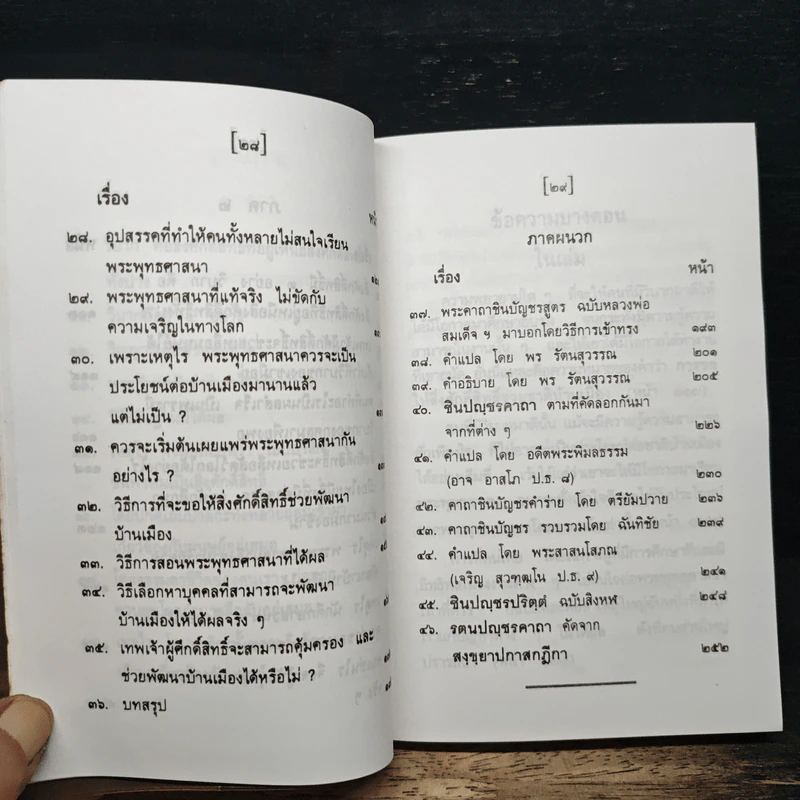 [๒๘]
เรื่อง
๒๘. อุปสรรคที่ทำให้คนทั้งหลายไม่สนใจเรียน
พระพุทธศาสนา
๒๙. พระพุทธศาสนาที่แท้จริง ไม่ขัดกับ
ความเจริญในทางโลก
๓๐. เพราะเหตุไร พระพุทธศาสนาควรจะเป็น
ประโยชน์ต่อบ้านเมืองมานานแล้ว
แต่ไม่เป็น ?
๓๑. ควรจะเริ่มต้นเผยแพร่พระพุทธศาสนากัน
อย่างไร ?
๓๒. วิธีการที่จะขอให้สิ่งศักดิ์สิทธิ์ช่วยพัฒนา
บ้านเมือง
๓๓. วิธีการสอนพระพุทธศาสนาที่ได้ผล
๓๔. วิธีเลือกหาบุคคลที่สามารถจะพัฒนา
บ้านเมืองให้ได้ผลจริง ๆ
๓๕. เทพเจ้าผู้ศักดิ์สิทธิ์จะสามารถคุ้มครอง และ
ช่วยพัฒนาบ้านเมืองได้หรือไม่ ?
๓๖. บทสรุป
[๒๙]
ภาคผนวก
เรื่อง หน้า
๓๗. พระคาถาชินบัญชรสูตร ฉบับหลวงพ่อ
สมเด็จ ฯ มาบอกโดยวิธีการเข้าทรง ๑๙๓
๓๘. คำแปล โดย พร รัตนสุวรรณ ๒๐๑
๓๙. คำอธิบาย โดย พร รัตนสุวรรณ ๒๐๕
๔๐. ชินปญฺชรคาถา ตามที่คัดลอกกันมา
จากที่ต่าง ๆ ๒๒๖
๔๑. คำแปล โดย อดีตพระพิมลธรรม
(อาจ อาสโภ ป.ธ. ๘) ๒๓๐
๔๒. คาถาชินบัญชรคำร่าย โดย ตรียัมปวาย ๒๓๖
๔๓. คาถาชินบัญชร รวบรวมโดย ฉันทิชัย ๒๓๙
๔๔. คำแปล โดย พระสาสนโสภณ
(เจริญ สุวฑฺฒโน ป.ธ. ๙) ๒๔๑
๔๕. ชินปญฺชรปริตฺตํ ฉบับสิงหฬ ๒๔๘
๔๖. รตนปญฺชรคาถา คัดจาก
สงฺขฺยาปกาสกฎีกา ๒๕๒